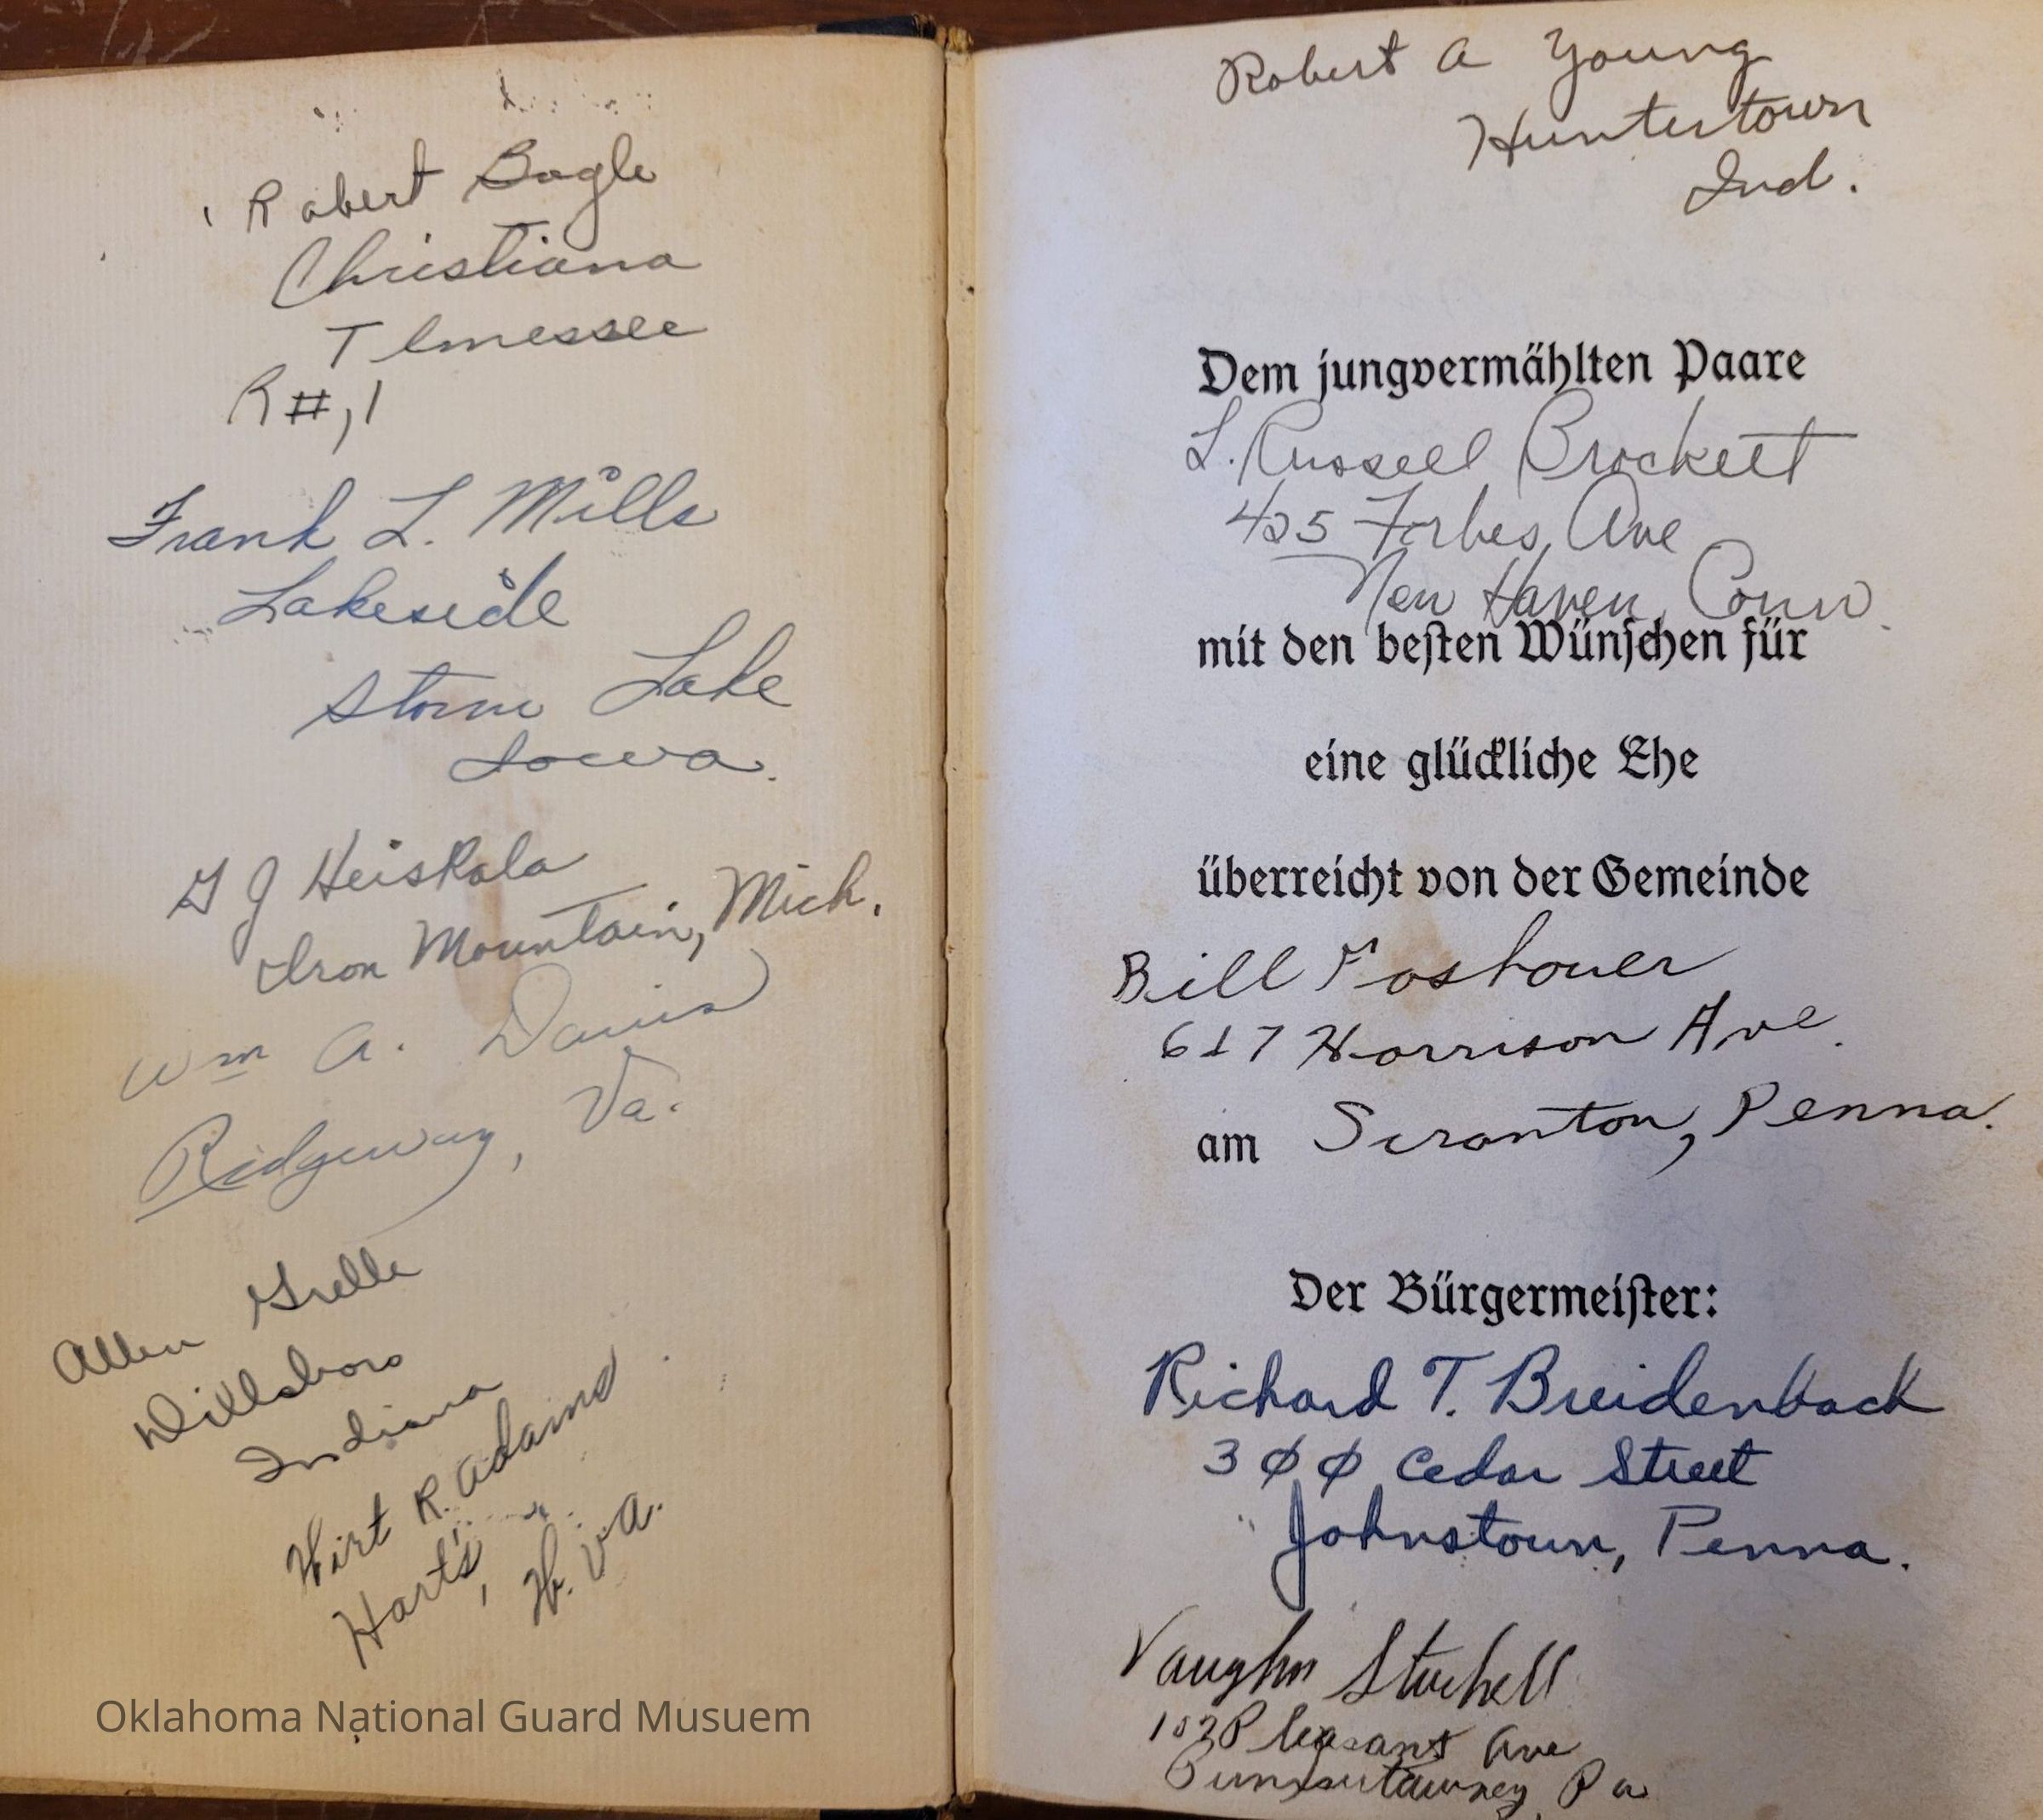 Robert Bogle
Christiana
Tennessee
R#,1
Frank L. Mills
Lakeside
Storm Lake
Iowa.
G J Heiskala
Iron Mountain, Mich.
Wm A. Davis
Ridgeway, Va.
Allen Grelle
Dillsboro
Indiana
Wirt R. Adams
Harts, W. Va.
Oklahoma National Guard Musuem
Robert A Young
Huntertown
Ind.
Dem jungvermählten Paare
L. Russell Brockett
425 Forbes Ave
New Haven, Conn.
mit den besten Wünschen für
eine glückliche Ehe
überreicht von der Gemeinde
Bill Foshouer
617 Harrison Ave.
am Scranton, Penna.
Der Bürgermeister:
Richard T. Breidenback
300 Cedar Street
Johnstown, Penna.
Vaughn Stuchell
Pleasant Ave
Punxsutawney, Pa